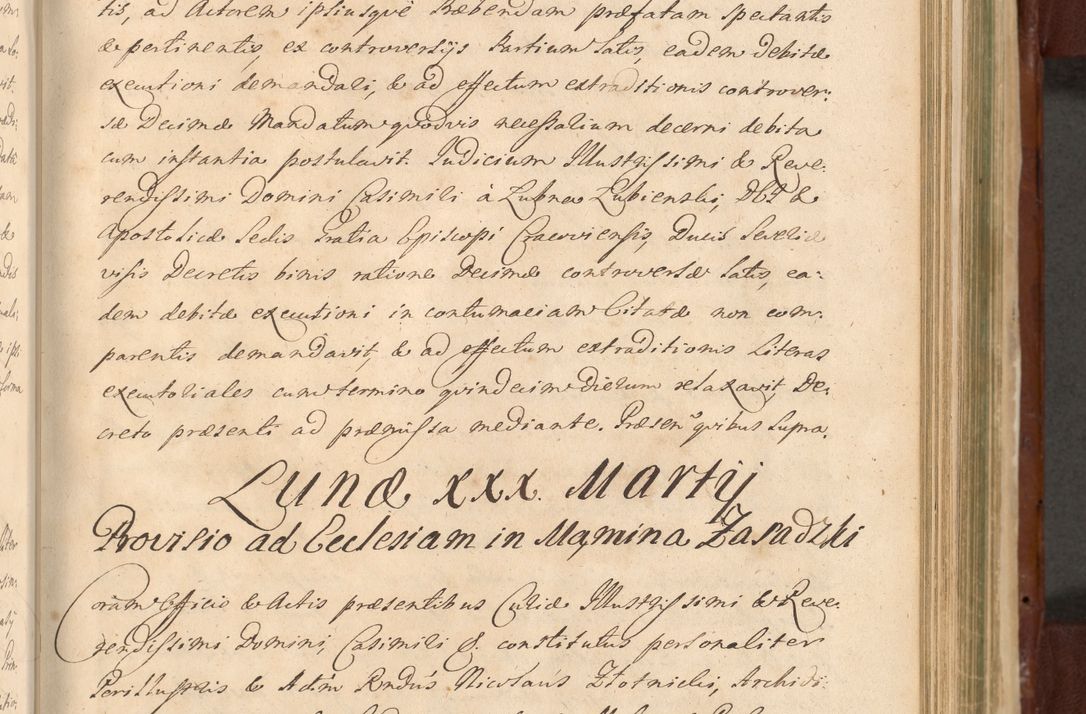 tis, ad Actorem ipsiusquè Præbendam præfatam spectantis
& pertinentis, ex controversijs Partium latis, eadem debitæ
executioni demandali, & ad effectum extraditionis controver:
sæ Decimæ Mandatum quodvis necessarium decerni debita
cum instantia postulavit. Iudicium Illustrissimi & Reve:
rendissimi Domini Casimiri à Lubna Lubienski, DEI &
Apostolicæ Sedis Gratia Episcopi Cracoviensis, Ducis Severiæ
visis Decretis binis ratione Decimæ controversæ latis, ea:
dem debitæ executioni in contumaciam Citatæ non com:
parentis demandavit, & ad effectum extraditionis Literas
executoriales cum termino quindecim dierum relaxavit, De:
creto præsenti ad præmissa mediante. Præsen: quibus supra.
Lunæ xxx Martij
Provisio ad Ecclesiam in Mąmina Zasadzki
Coram Officio & Actis præsentibus Curiæ Illustrissimi & Reve:
rendissimi Domini, Casimiri &. constitutus personaliter
Perillustris & Adm Rndus Nicolaus Złotnicki, Archidi: